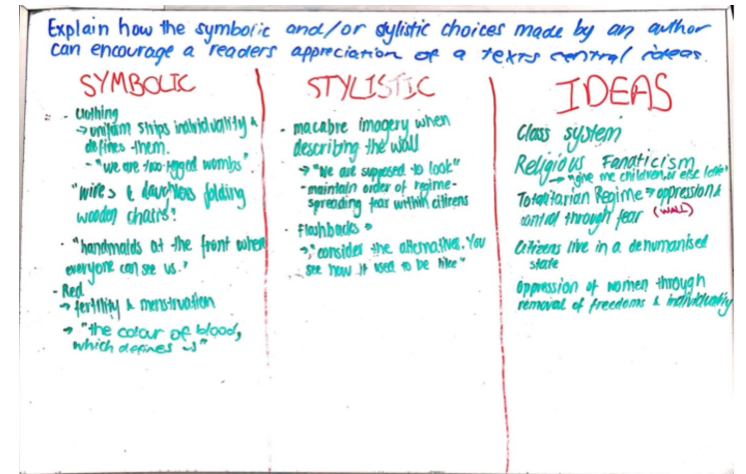 Explain how the symbolic and/or stylistic choices made by an author
can encourage a readers appreciation of a texts central ideas.
SYMBOLIC
- Clothing
→ uniform strips individuality &
defines them.
- "we are two-legged wombs".
"wives & daughters folding
wooden chairs"
- "handmaids at the front when
everyone can see us."
- Red
→ fertility & menstruation
→ "the colour of blood,
which defines us"
STYLISTIC
- macabre imagery when
describing the wall
→ "We are supposed to look"
- maintain order of regime -
spreading fear within citizens
- Flashbacks →
→ "consider the alternatives. You
see how it used to be like"
IDEAS
Class system
Religious Fanaticism
→ "give me children, or else I die"
Totalitarian Regime → oppression &
control through fear (WALL)
Citizens live in a dehumanised
state
Oppression of women through
removal of freedoms & individuality